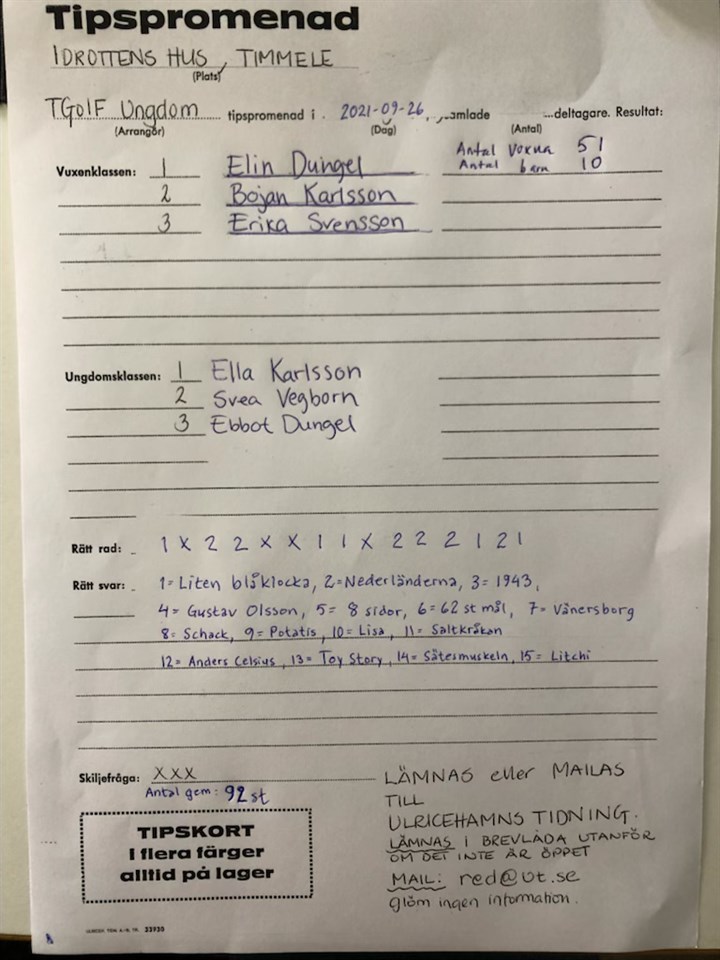 Tipspromenad
IDROTTENS HUS, TIMMELE
(Plats)
TGOIF Ungdom tipspromenad i 2021-09-26, samlade deltagare. Resultat:
(Arrangör) (Dag) (Antal)
Antal vuxna 51
Antal barn 10
Vuxenklassen: 1 Elin Dungel
2 Bojan Karlsson
3 Erika Svensson
Ungdomsklassen: 1 Ella Karlsson
2 Svea Vegborn
3 Ebbot Dungel
Rätt rad: 1 X 2 2 X X 1 1 X 2 2 2 1 2 1
Rätt svar: 1= Liten blåklocka, 2=Nederländerna, 3= 1943,
4= Gustav Olsson, 5= 8 sidor, 6= 62 st mål, 7= Vänersborg
8= Schack, 9= Potatis, 10= Lisa, 11= Saltkråkan
12= Anders Celsius, 13= Toy Story, 14= Sätesmuskeln, 15= Litchi
Skiljefråga: XXX
Antal gem: 92 st
TIPSKORT
i flera färger
alltid på lager
LÄMNAS eller MAILAS
TILL
ULRICEHAMNS TIDNING.
LÄMNAS I BREVLÅDA UTANFÖR
OM DET INTE ÄR ÖPPET
MAIL: red@ut.se
glöm ingen information.
33930